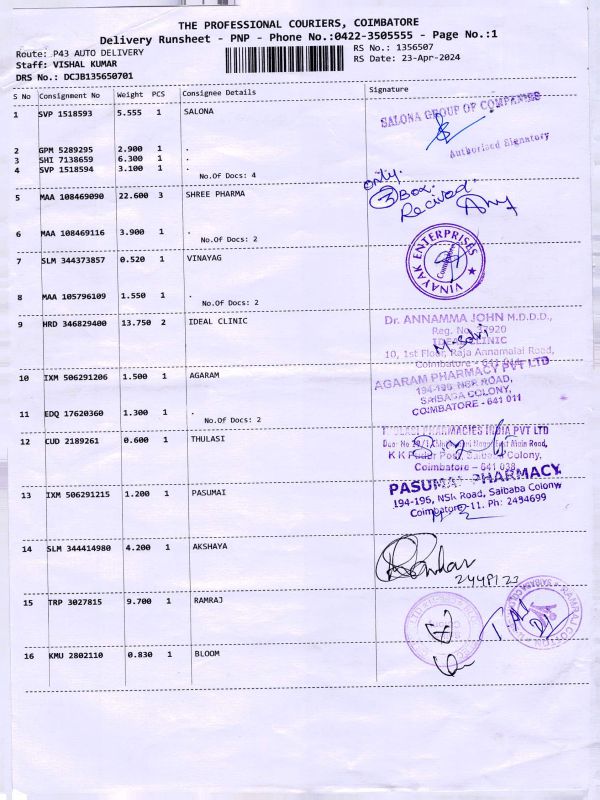 THE PROFESSIONAL COURIERS, COIMBATORE
Delivery Runsheet - PNP - Phone No.:0422-3505555 - Page No.:1
Route: P43 AUTO DELIVERY
RS No.: 1356507
Staff: VISHAL KUMAR
RS Date: 23-Apr-2024
DRS No.: DCJB135650701
S No Consignment No Weight PCS Consignee Details Signature
1 SVP 1518593 5.555 1 SALONA
SALONA GROUP OF COMPANIES
Authorised Signatory
2 GPM 5289295 2.900 1 .
3 SHI 7138659 6.300 1 .
4 SVP 1518594 3.100 1 .
No.Of Docs: 4
5 MAA 108469090 22.600 3 SHREE PHARMA
only.
3 Box.
Recived
6 MAA 108469116 3.900 1 .
No.Of Docs: 2
7 SLM 344373857 0.520 1 VINAYAG
VINAYAK ENTERPRISES
8 MAA 105796109 1.550 1 .
No.Of Docs: 2
9 HRD 346829400 13.750 2 IDEAL CLINIC
Dr. ANNAMMA JOHN M.D.D.D.,
Reg. No. 37920
IDEAL CLINIC
10, 1st Floor, Raja Annamalai Road,
Coimbatore - 641
10 IXM 506291206 1.500 1 AGARAM
AGARAM PHARMACY PVT LTD
194-196 NSR ROAD,
SAIBABA COLONY,
COIMBATORE - 641 011
11 EDQ 17620360 1.300 1 .
No.Of Docs: 2
12 CUD 2189261 0.600 1 THULASI
PHARMACIES INDIA PVT LTD
Main Road,
K K Pudur Post, Saibaba Colony,
Coimbatore - 641 038
13 IXM 506291215 1.200 1 PASUMAI
PASUMAI PHARMACY
194-196, NSR Road, Saibaba Colony
Coimbatore-11. Ph: 2434699
14 SLM 344414980 4.200 1 AKSHAYA
15 TRP 3027815 9.700 1 RAMRAJ
RAMRAJ COTTON
16 KMU 2802110 0.830 1 BLOOM